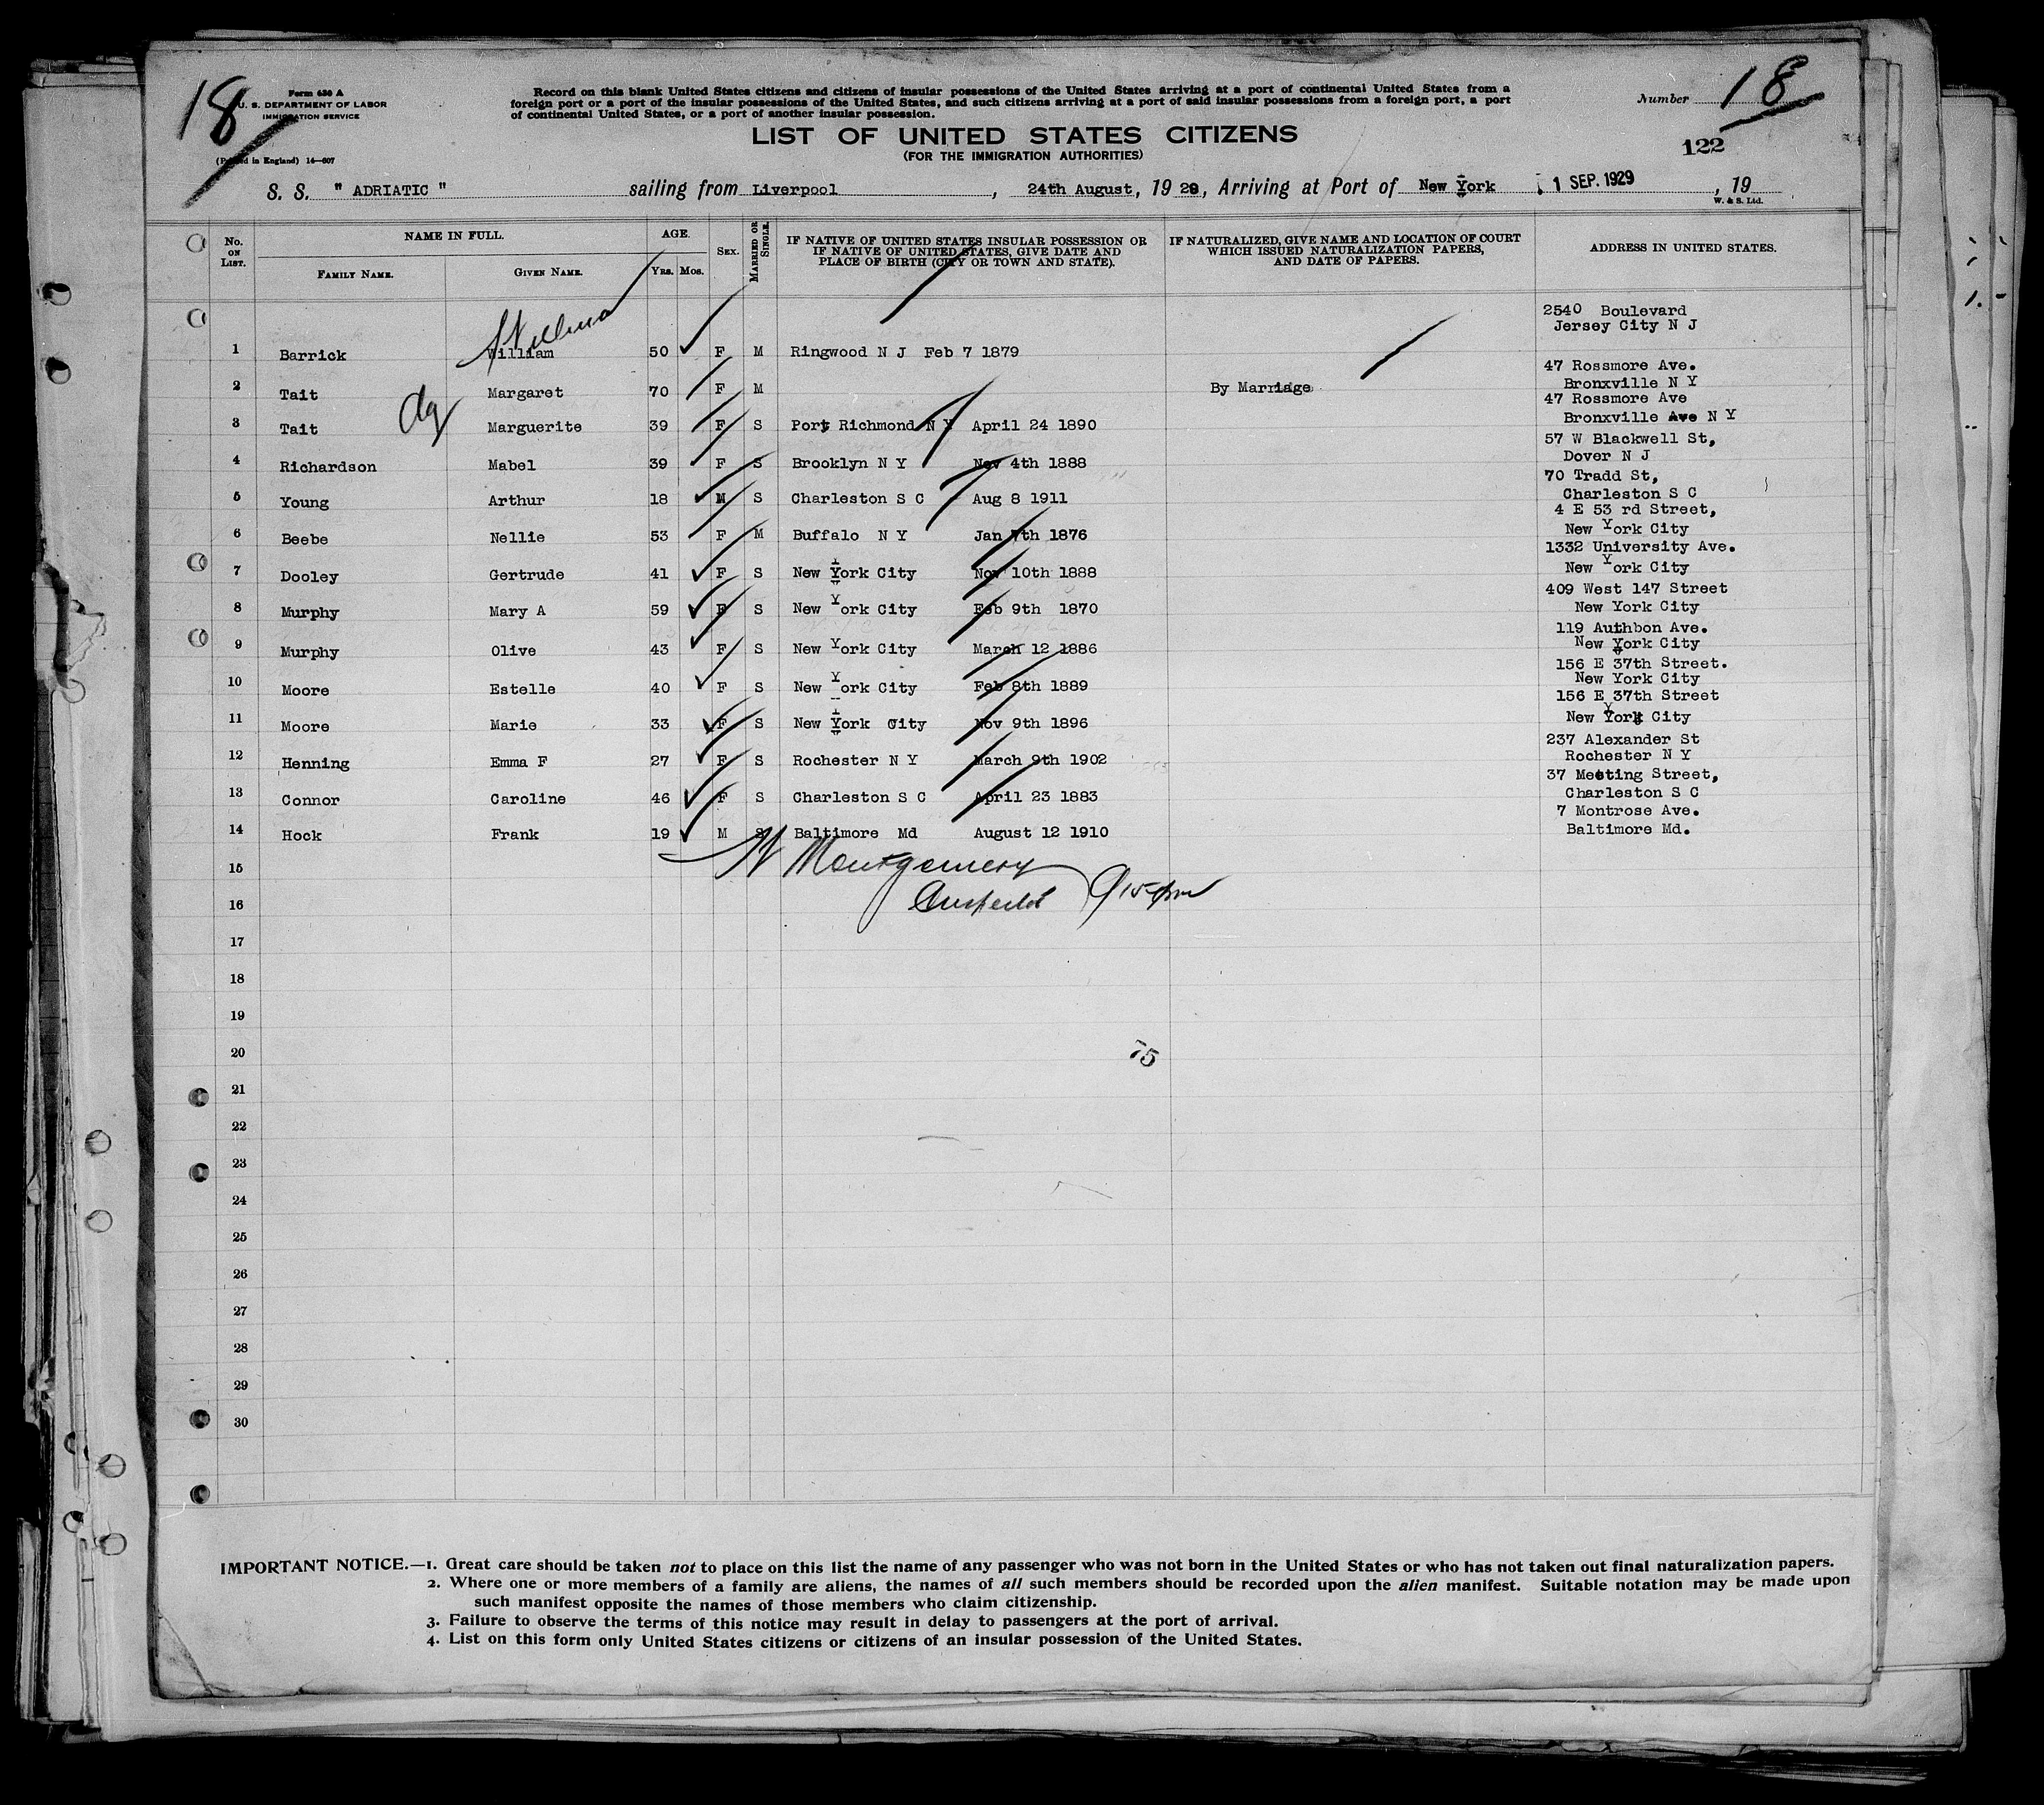 18
Form 630 A
U. S. DEPARTMENT OF LABOR
IMMIGRATION SERVICE
(Printed in England) 14—607
Record on this blank United States citizens and citizens of insular possessions of the United States arriving at a port of continental United States from a
foreign port or a port of the insular possessions of the United States, and such citizens arriving at a port of said insular possessions from a foreign port, a port
of continental United States, or a port of another insular possession.
Number 18
LIST OF UNITED STATES CITIZENS
(FOR THE IMMIGRATION AUTHORITIES)
122
S. S. " ADRIATIC " sailing from Liverpool, 24th August, 1929, Arriving at Port of New York 1 SEP. 1929, 19
W. & S. Ltd.
No. ON LIST. NAME IN FULL. FAMILY NAME. GIVEN NAME. AGE. YRS. MOS. SEX. MARRIED OR SINGLE. IF NATIVE OF UNITED STATES INSULAR POSSESSION OR IF NATIVE OF UNITED STATES, GIVE DATE AND PLACE OF BIRTH (CITY OR TOWN AND STATE). IF NATURALIZED, GIVE NAME AND LOCATION OF COURT WHICH ISSUED NATURALIZATION PAPERS, AND DATE OF PAPERS. ADDRESS IN UNITED STATES.
1 Barrick William 50 F M Ringwood N J Feb 7 1879 2540 Boulevard Jersey City N J
2 Tait Margaret 70 F M By Marriage 47 Rossmore Ave. Bronxville N Y
3 Tait Marguerite 39 F S Port Richmond N Y April 24 1890 47 Rossmore Ave Bronxville Ave N Y
4 Richardson Mabel 39 F S Brooklyn N Y Nov 4th 1888 57 W Blackwell St, Dover N J
5 Young Arthur 18 M S Charleston S C Aug 8 1911 70 Tradd St, Charleston S C
6 Beebe Nellie 53 F M Buffalo N Y Jan 7th 1876 4 E 53 rd Street, New York City
7 Dooley Gertrude 41 F S New York City Nov 10th 1888 1332 University Ave. New York City
8 Murphy Mary A 59 F S New York City Feb 9th 1870 409 West 147 Street New York City
9 Murphy Olive 43 F S New York City March 12 1886 119 Authbon Ave. New York City
10 Moore Estelle 40 F S New York City Feb 8th 1889 156 E 37th Street. New York City
11 Moore Marie 33 F S New York City Nov 9th 1896 156 E 37th Street New York City
12 Henning Emma F 27 F S Rochester N Y March 9th 1902 237 Alexander St Rochester N Y
13 Connor Caroline 46 F S Charleston S C April 23 1883 37 Meeting Street, Charleston S C
14 Hock Frank 19 M S Baltimore Md August 12 1910 7 Montrose Ave. Baltimore Md.
15 Montgomery
16 9 15 pm
17
18
19
20 75
21
22
23
24
25
26
27
28
29
30
IMPORTANT NOTICE.—1. Great care should be taken not to place on this list the name of any passenger who was not born in the United States or who has not taken out final naturalization papers.
2. Where one or more members of a family are aliens, the names of all such members should be recorded upon the alien manifest. Suitable notation may be made upon
such manifest opposite the names of those members who claim citizenship.
3. Failure to observe the terms of this notice may result in delay to passengers at the port of arrival.
4. List on this form only United States citizens or citizens of an insular possession of the United States.